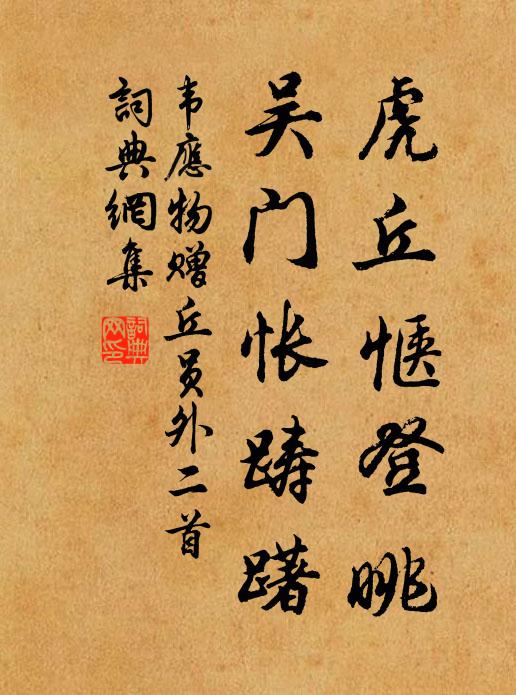 虎丘惬登眺
吴门怅踌躇
韦應物赠丘员外二首
詞典網集
詞典網印